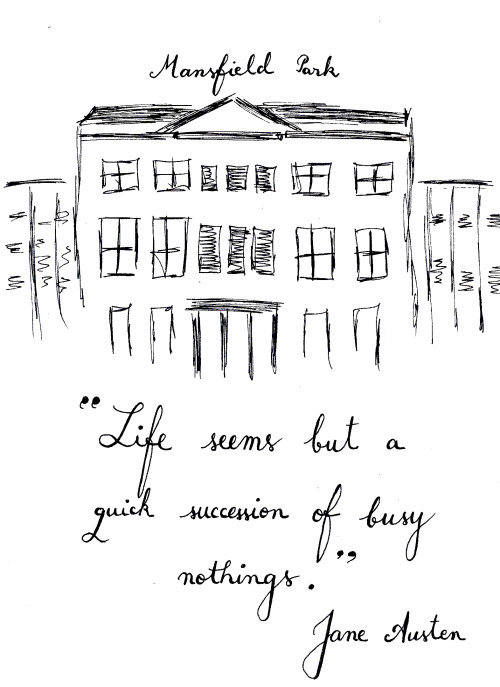 Mansfield Park
"Life seems but a
quick succession of busy
nothings."
Jane Austen